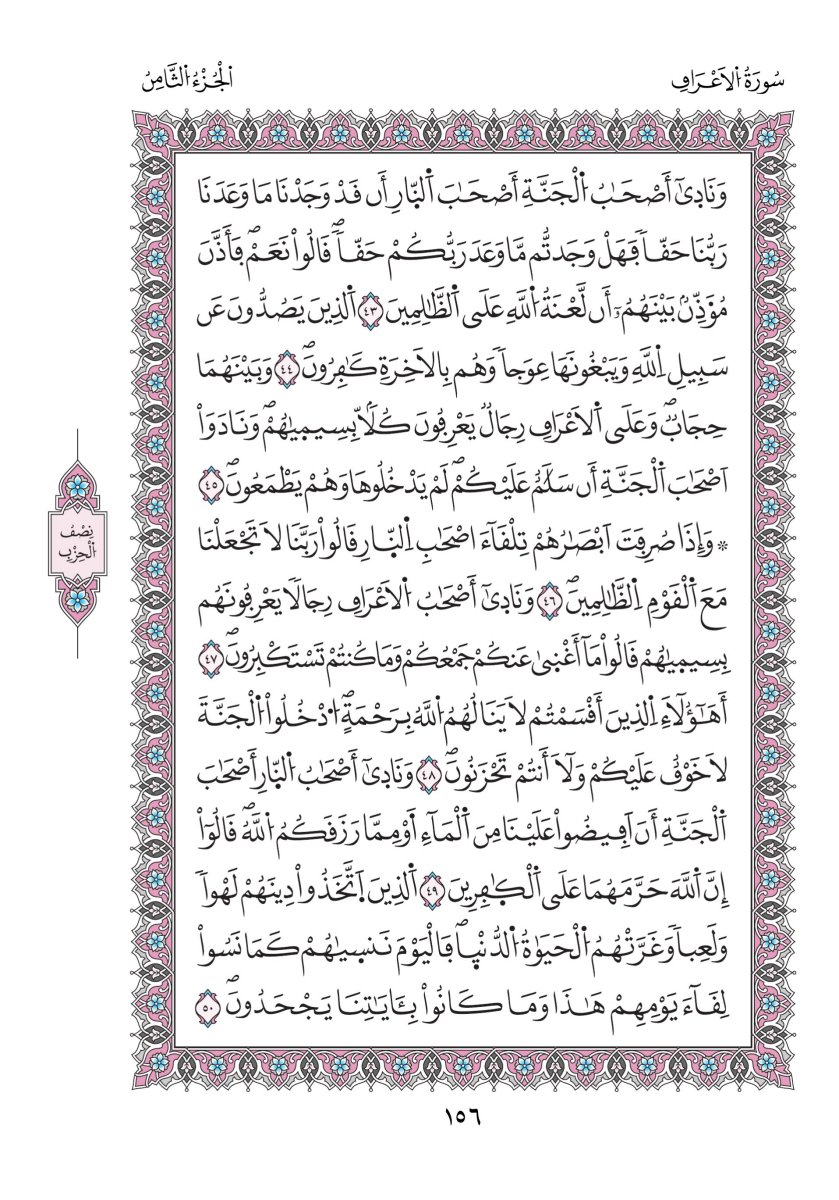 سُورَةُ الْأَعْرَافِ
الْجُزْءُ الثَّامِنُ
وَنَادِىٰٓ أَصْحَٰبُ اُ۬لْجَنَّةِ أَصْحَٰبَ اَ۬لنّ۪ارِ أَن قَدْ وَجَدْنَا مَا وَعَدَنَا
رَبُّنَا حَقّاٗ فَهَلْ وَجَدتُّم مَّا وَعَدَ رَبُّكُمْ حَقّاٗۖ قَالُواْ نَعَمْۖ فَأَذَّنَ
مُؤَذِّنُۢ بَيْنَهُمُۥٓ أَن لَّعْنَةُ اُ۬للَّهِ عَلَى اَ۬لظَّٰلِمِينَ ٤٣ اَ۬لذِينَ يَصُدُّونَ عَن
سَبِيلِ اِ۬للَّهِ وَيَبْغُونَهَا عِوَجاٗ وَهُم بِالَاخِرَةِ كَٰفِرُونَۖ ٤٤ وَبَيْنَهُمَا
حِجَابٞۖ وَعَلَى اَ۬لَاعْرَافِ رِجَالٞ يَعْرِفُونَ كُلَّاَۢ بِسِيم۪يٰهُمْۖ وَنَادَوَاْ
اَصْحَٰبَ اَ۬لْجَنَّةِ أَن سَلَٰمٌ عَلَيْكُمْۖ لَمْ يَدْخُلُوهَا وَهُمْ يَطْمَعُونَۖ ٤٥
۞ وَإِذَا صُرِفَتَ اَبْصَٰرُهُمْ تِلْقَآءَ اَصْحَٰبِ اِ۬لنّ۪ارِ قَالُواْ رَبَّنَا لَا تَجْعَلْنَا
مَعَ اَ۬لْقَوْمِ اِ۬لظَّٰلِمِينَۖ ٤٦ وَنَادِىٰٓ أَصْحَٰبُ اُ۬لَاعْرَافِ رِجَالاٗ يَعْرِفُونَهُم
بِسِيم۪يٰهُمْ قَالُواْ مَآ أَغْنِىٰ عَنكُمْ جَمْعُكُمْ وَمَا كُنتُمْ تَسْتَكْبِرُونَۖ ٤٧
أَهَٰٓؤُلَآءِ اِ۬لذِينَ أَقْسَمْتُمْ لَا يَنَالُهُمُ اُ۬للَّهُ بِرَحْمَةٍۖ اُ۟دْخُلُواْ اُ۬لْجَنَّةَ
لَا خَوْفٌ عَلَيْكُمْ وَلَآ أَنتُمْ تَحْزَنُونَۖ ٤٨ وَنَادِىٰٓ أَصْحَٰبُ اُ۬لنّ۪ارِ أَصْحَٰبَ
اَ۬لْجَنَّةِ أَنَ اَفِيضُواْ عَلَيْنَا مِنَ اَ۬لْمَآءِ اَ۬وْ مِمَّا رَزَقَكُمُ اُ۬للَّهُۖ قَالُوٓاْ
إِنَّ اَ۬للَّهَ حَرَّمَهُمَا عَلَى اَ۬لْكٰ۪فِرِينَ ٤٩ اَ۬لذِينَ اَ۪تَّخَذُواْ دِينَهُمْ لَهْواٗ
وَلَعِباٗ وَغَرَّتْهُمُ اُ۬لْحَيَوٰةُ اُ۬لدُّنْي۪اۖ فَالْيَوْمَ نَنس۪يٰهُمْ كَمَا نَسُواْ
لِقَآءَ يَوْمِهِمْ هَٰذَا وَمَا كَانُواْ بِـَٔايَٰتِنَا يَجْحَدُونَۖ ٥٠
نِصْفُ
الْحِزْبِ
١٥٦